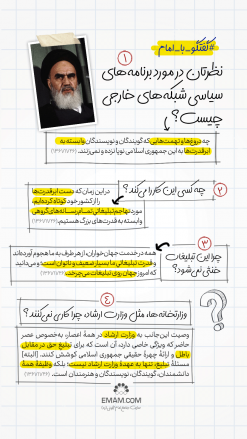 #گفتگو_با_امام
۱
نظرتان در مورد برنامه‌های
سیاسی شبکه‌های خارجی
چیست؟
چه دروغ‌ها و تهمت‌هایی که گویندگان و نویسندگان وابسته به
ابرقدرت‌ها به این جمهوری اسلامی نوپا نزده و نمی‌زنند.
۲
چه کسی این کار را می‌کند؟
در این زمان که دست ابرقدرت‌ها
را از کشور خود کوتاه کرده‌ایم،
مورد تهاجم تبلیغاتی تمام رسانه‌های گروهی
وابسته به قدرت‌های بزرگ هستیم.
۳
چرا این تبلیغات
خنثی نمی‌شود؟
همه در خدمت جهان‌خواران، از هر طرف به ما هجوم آورده‌اند
و قدرت تبلیغاتی ما بسیار ضعیف و ناتوان است؛ و می‌دانید
که امروز جهان روی تبلیغات می‌چرخد.
۴
وزارتخانه‌ها، مثل وزارت ارشاد چرا کاری نمی‌کنند؟
وصیت این‌جانب به وزارت ارشاد در همهٔ اعصار، به‌خصوص عصر
حاضر که ویژگی خاصی دارد، آن است که برای تبلیغ حق در مقابل
باطل و ارائهٔ چهرهٔ حقیقی جمهوری اسلامی کوشش کنند. [البته]
مسئلهٔ تبلیغ، تنها به عهدهٔ وزارت ارشاد نیست؛ بلکه وظیفهٔ همهٔ
دانشمندان، گویندگان، نویسندگان و هنرمندان است.
EMAM.COM